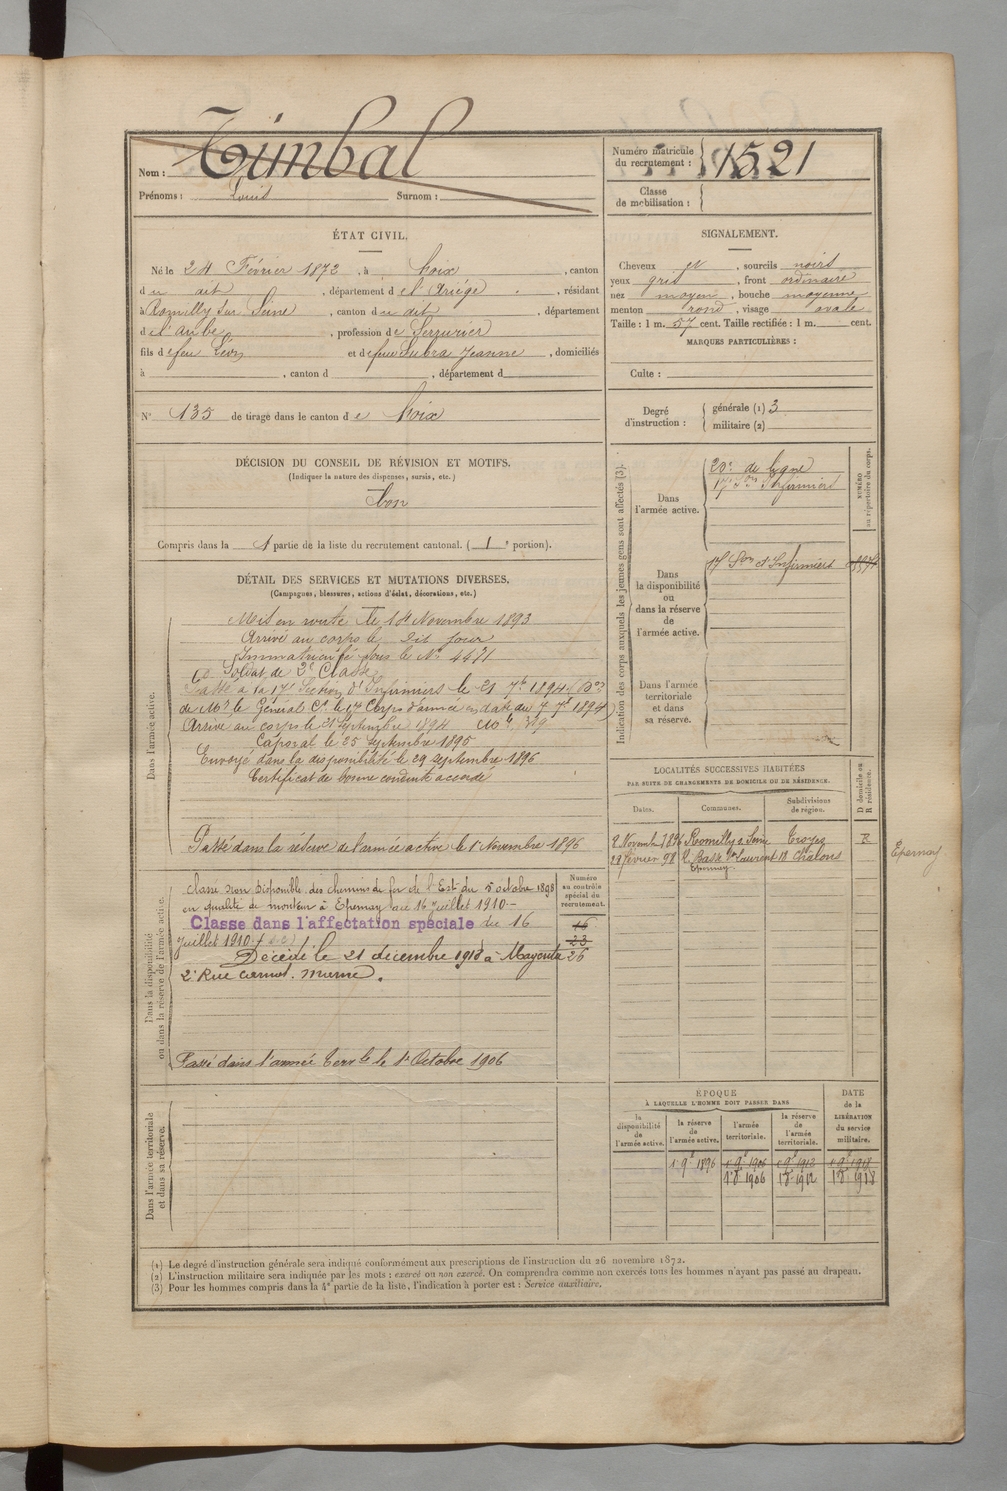 Nom : Timbal
Prénoms : Louis Surnom :
Numéro matricule
du recrutement : 1521
Classe
de mobilisation :
ÉTAT CIVIL.
Né le 24 Février 1872, à Foix, canton
du dit, département de l'Ariége, résidant
à Romilly sur Seine, canton du dit, département
de l'Aube, profession de Serrurier
fils de feu Léon et de feue Subra Jeanne, domiciliés
à , canton d , département d
N° 135 de tirage dans le canton de Foix
SIGNALEMENT.
Cheveux et, sourcils noirs
yeux gris, front ordinaire
nez moyen, bouche moyenne
menton rond, visage ovale
Taille : 1 m. 57 cent. Taille rectifiée : 1 m. cent.
MARQUES PARTICULIÈRES :
Culte :
Degré
d'instruction :
générale (1) 3
militaire (2)
DÉCISION DU CONSEIL DE RÉVISION ET MOTIFS.
(Indiquer la nature des dispenses, sursis, etc.)
bon
Compris dans la 1 partie de la liste du recrutement cantonal. (1e portion).
DÉTAIL DES SERVICES ET MUTATIONS DIVERSES.
(Campagnes, blessures, actions d'éclat, décorations, etc.)
Dans l'armée active.
Mis en route le 14 Novembre 1893
Arrivé au corps le dit jour
Immatriculé sous le No 4431
Soldat de 2e Classe
Passé à la 17e Section d'Infirmiers le 21 7bre 1894 (Don
de Mr le Général Ct le 17e Corps d'armée en date du 7 7bre 1894)
Arrivé au corps le 21 septembre 1894
Caporal le 25 septembre 1895
Envoyé dans la disponibilité le 29 septembre 1896
Certificat de bonne conduite accordé
Passé dans la réserve de l'armée active le 1er Novembre 1896
Dans la disponibilité
ou dans la réserve de l'armée active.
Classé non Disponible des chemins de fer de l'Est du 5 octobre 1898
en qualité de monteur à Epernay au 16 juillet 1910 -
Classe dans l'affectation spéciale du 16
juillet 1910
Décédé le 21 décembre 1918 à Mayenta
2 Rue Carnot. Marne.
Passé dans l'armée terrle le 1er Octobre 1906
Numéro
au contrôle
spécial du
recrutement.
16
23
26
Dans l'armée territoriale
et dans sa réserve.
Indication des corps auxquels les jeunes gens sont affectés (3).
Dans
l'armée active.
20e de ligne
17e Son Infirmiers
NUMÉRO
au répertoire du corps.
Dans
la disponibilité
ou
dans la réserve
de
l'armée active.
17e Son d'Infirmiers
Dans l'armée
territoriale
et dans
sa réserve.
LOCALITÉS SUCCESSIVES HABITÉES
PAR SUITE DE CHANGEMENTS DE DOMICILE OU DE RÉSIDENCE.
Dates. Communes. Subdivisions
de région.
D domicile ou
R résidence.
2 Novemb 1896 Romilly s Seine Troyes R
28 février 98 Chalons
Epernay.
Epernay
ÉPOQUE
À LAQUELLE L'HOMME DOIT PASSER DANS
la
disponibilité
de
l'armée active.
la réserve
de
l'armée active.
l'armée
territoriale.
la réserve
de
l'armée
territoriale.
DATE
de la
LIBÉRATION
du service
militaire.
1er 9bre 1896 1er 9bre 1906 1er 9bre 1912 1er 9bre 1918
1er 8bre 1906 1er 8bre 1912 1er 8bre 1918
(1) Le degré d'instruction générale sera indiqué conformément aux prescriptions de l'instruction du 26 novembre 1872.
(2) L'instruction militaire sera indiquée par les mots : exercé ou non exercé. On comprendra comme non exercés tous les hommes n'ayant pas passé au drapeau.
(3) Pour les hommes compris dans la 4e partie de la liste, l'indication à porter est : Service auxiliaire.